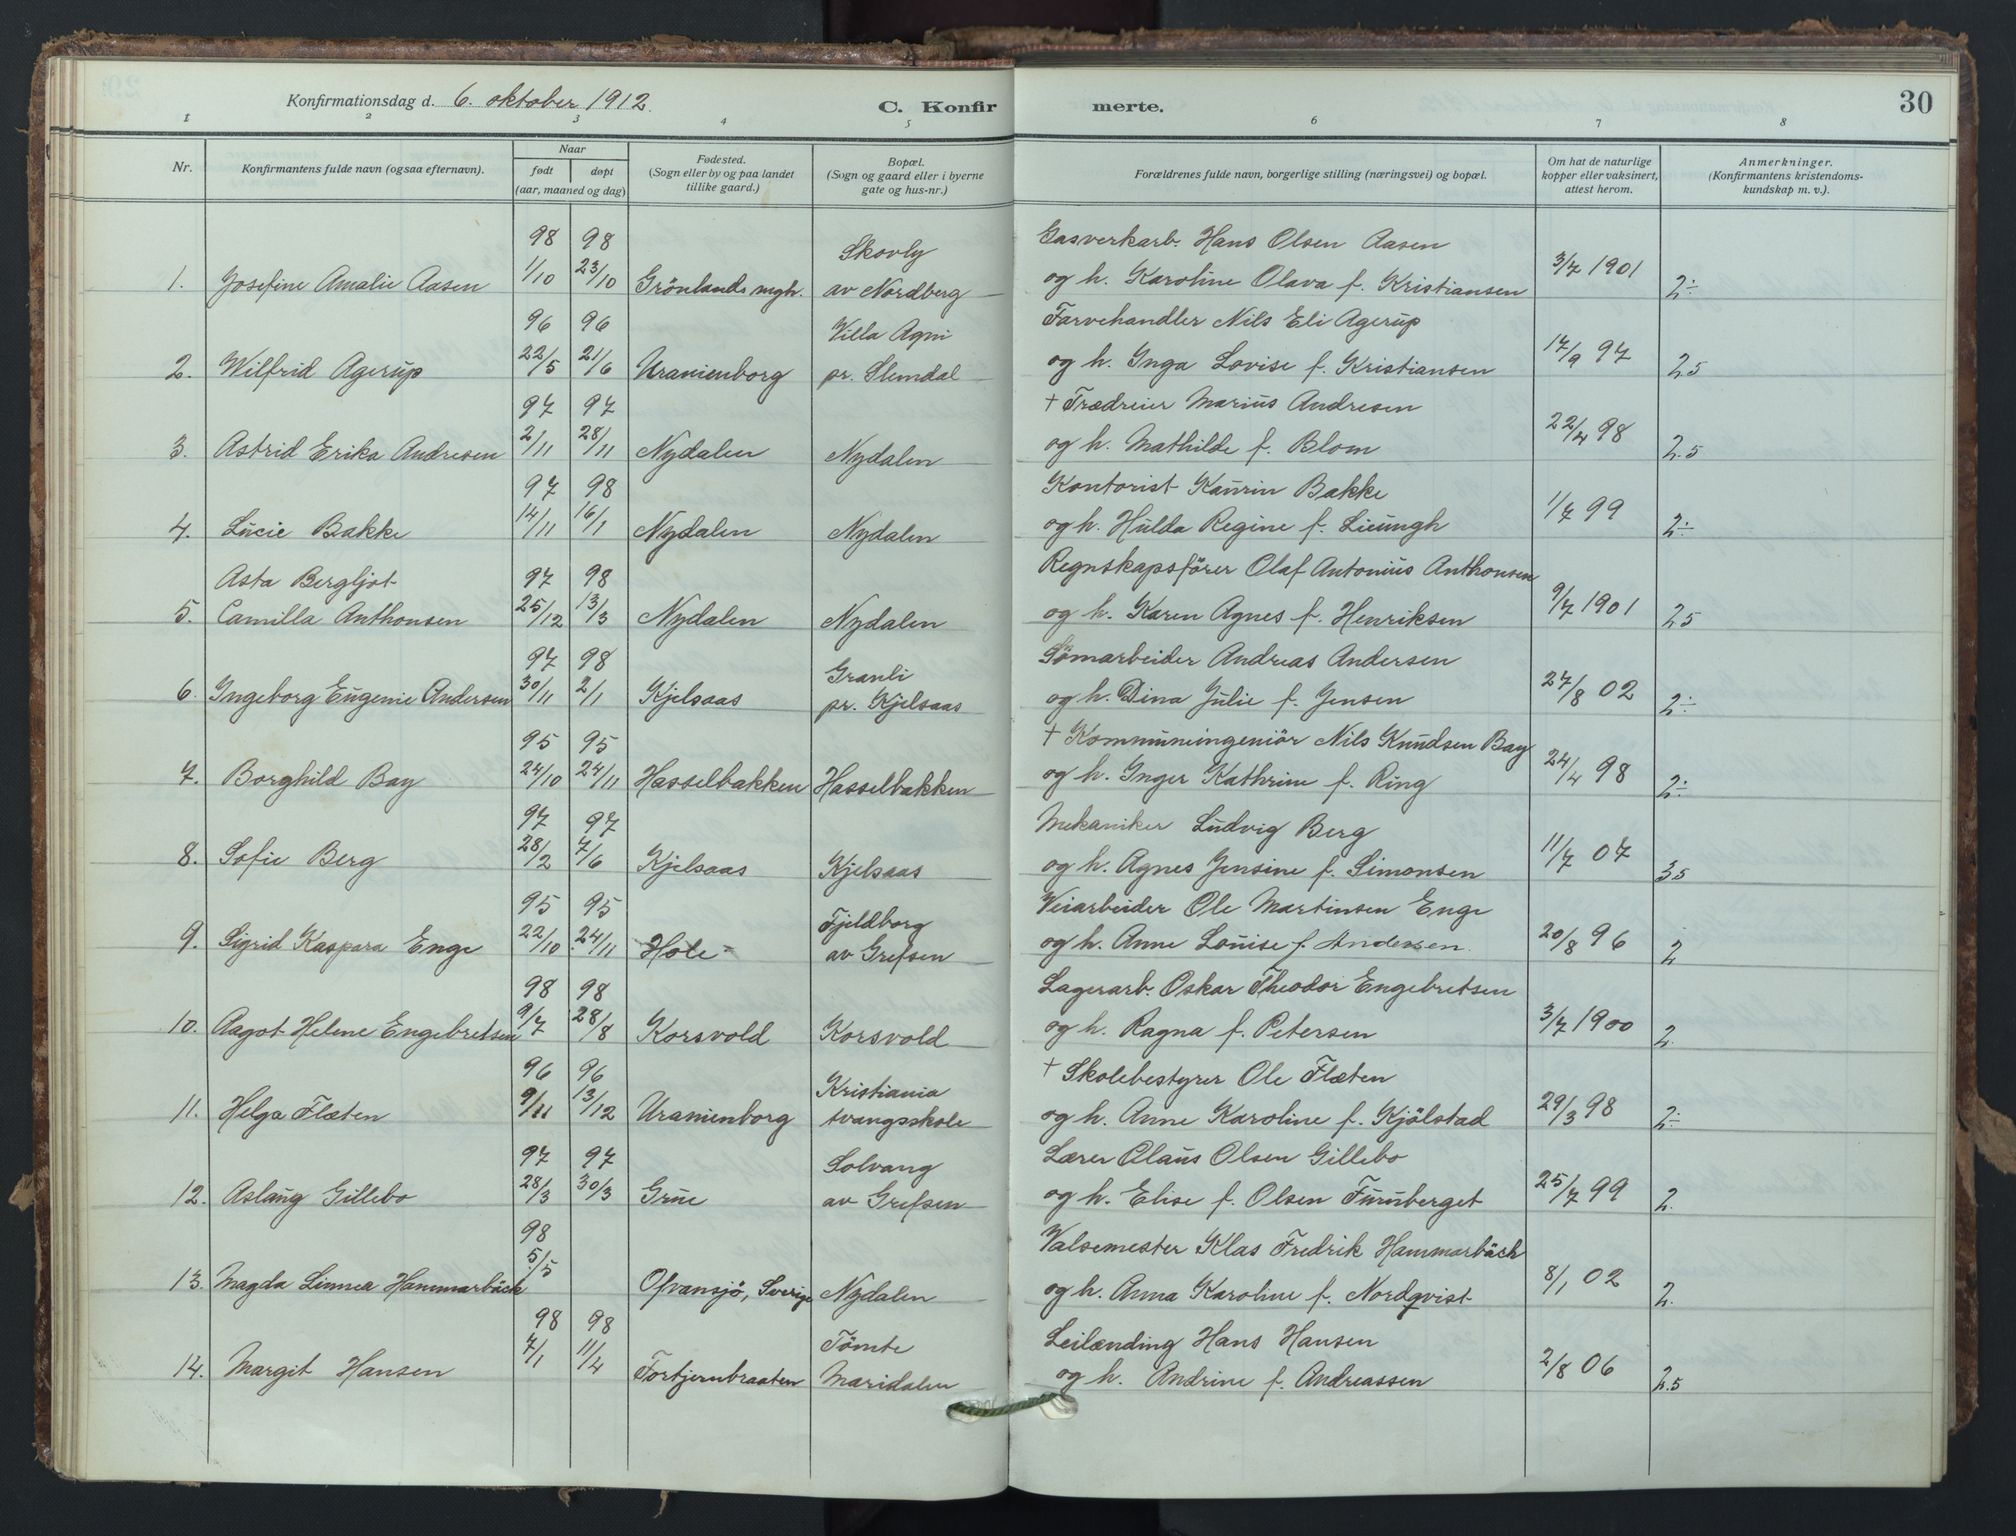 Konfirmationsdag d. 6. oktober 1912. C. Konfirmerte. 30
1 2 3 4 5 6 7 8
Nr. Konfirmantens fulde navn (ogsaa efternavn). Naar født døpt (aar, maaned og dag) Fødested. (Sogn eller by og paa landet tillike gaard.) Bopæl. (Sogn og gaard eller i byerne gate og hus-nr.) Forældrenes fulde navn, borgerlige stilling (næringsvei) og bopæl. Om hat de naturlige kopper eller vaksinert, attest herom. Anmerkninger. (Konfirmantens kristendomskundskap m. v.).
98 98 Skovly Gasverkarb. Hans Olsen Aasen
1. Josefine Amalie Aasen 1/10 23/10 Grönlands mgh. av Nordberg og h. Karoline Olava f. Kristiansen 3/7 1901 2÷
96 96 Villa Agni Farvehandler Nils Eli Agerup
2. Wilfrid Agerup 22/5 21/6 Uranienborg pr. Slemdal og h. Inga Lovise f. Kristiansen 17/9 97 2.5
97 97 † Trædreier Marius Andresen
3. Astrid Erika Andresen 2/11 28/11 Nydalen Nydalen og h. Mathilde f. Blom 22/4 98 2.5
97 98 Kontorist Kaurin Bakke
4. Lucie Bakke 14/11 16/1 Nydalen Nydalen og h. Hulda Regine f. Lieungh 1/7 99 2÷
Asta Bergljot 97 98 Regnskapsförer Olaf Antonius Anthonsen
5. Camilla Anthonsen 25/12 13/3 Nydalen Nydalen og h. Karen Agnes f. Henriksen 9/7 1901 2.5
97 98 Granli Tömarbeider Andreas Andersen
6. Ingeborg Eugenie Andersen 30/11 2/1 Kjelsaas pr. Kjelsaas og h. Dina Julie f. Jensen 27/8 02 2÷
95 95 † Kommuneingeniör Nils Knudsen Bay
7. Borghild Bay 24/10 24/11 Hasselbakken Hasselbakken og h. Inger Kathrine f. Ring 24/4 98 2÷
97 97 Mekaniker Ludvig Berg
8. Sofie Berg 28/2 7/6 Kjelsaas Kjelsaas og h. Agnes Jensine f. Simonsen 11/7 07 3.5
95 95 Fjeldborg Veiarbeider Ole Martinsen Enge
9. Sigrid Kaspara Enge 22/10 24/11 Hole av Grefsen og h. Anne Louise f. Andersen. 20/8 96 2
98 98 Lagerarb. Oskar Theodor Engebretsen
10. Aagot Helene Engebretsen 9/7 28/8 Korsvold Korsvold og h. Ragna f. Petersen 3/7 1900 2.
96 96 Kristiania † Skolebestyrer Ole Flæten
11. Helga Flæten 9/11 13/12 Uranienborg tvangsskole og h. Anne Karoline f. Kjölstad 29/3 98 2÷
97 97 Solvang Lærer Claus Olsen Gillebo
12. Aslaug Gillebo 28/3 30/3 Grue av Grefsen og h. Elise f. Olsen Furuberget 25/7 99 2.
98 Valsemester Klas Fredrik Hammarbäck
13. Magda Linnea Hammarbäck 5/5 Ofvansjö, Sverige Nydalen og h. Anna Karoline f. Nordqvist 8/1 02 2.
98 98 Tömte Leilænding Hans Hansen
14. Margit Hansen 7/1 11/4 Fortjernbraaten Maridalen og h. Andrine f. Andreassen 2/8 06 2.5